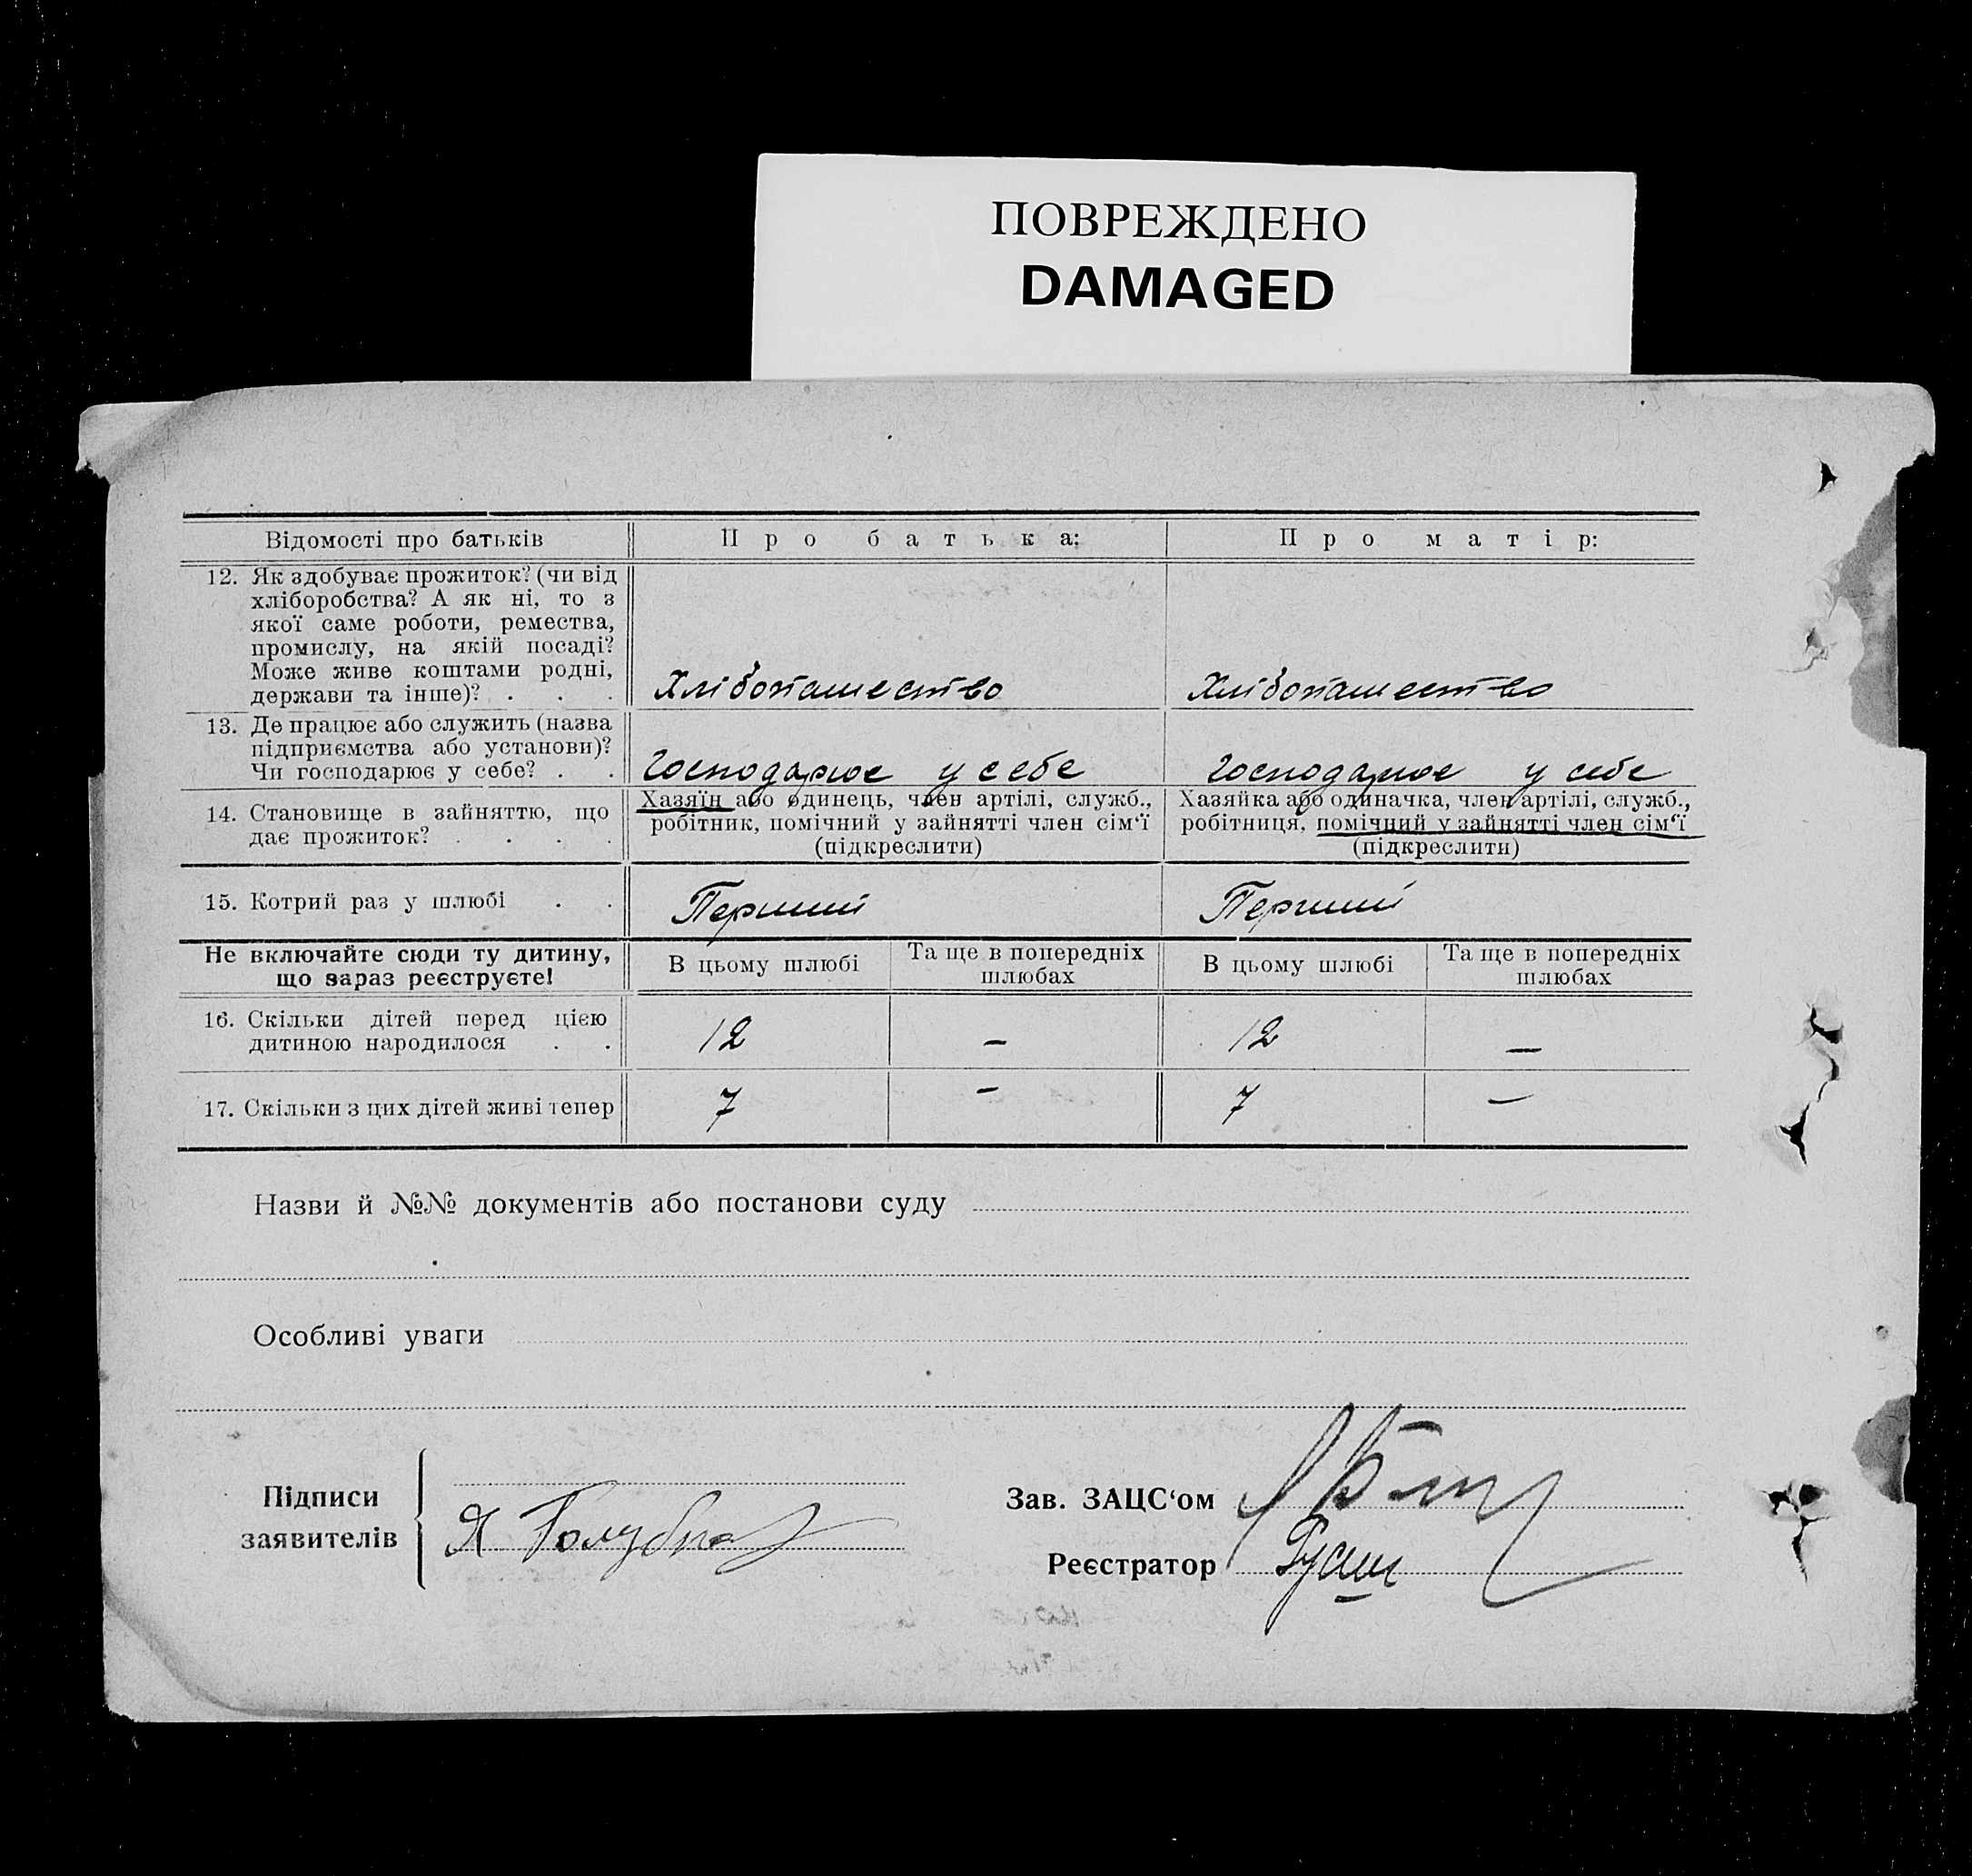 ПОВРЕЖДЕНО
DAMAGED
Відомості про батьків
Про батька:
Про матір:
12. Як здобуває прожиток? (чи від
хліборобства? А як ні, то з
якої саме роботи, ремества,
промислу, на якій посаді?
Може живе коштами родні,
держави та інше)? . . .
Хлібопашество
Хлібопашество
13. Де працює або служить (назва
підприємства або установи)?
Чи господарює у себе? . .
Господарює у себе
Господарює у себе
14. Становище в зайняттю, що
дає прожиток? . . . .
Хазяїн або одинець, член артілі, служб.,
робітник, помічний у зайнятті член сім‘ї
(підкреслити)
Хазяйка або одиначка, член артілі, служб.,
робітниця, помічний у зайнятті член сім‘ї
(підкреслити)
15. Котрий раз у шлюбі . .
Перший
Перший
Не включайте сюди ту дитину,
що зараз реєструєте!
В цьому шлюбі
Та ще в попередніх
шлюбах
В цьому шлюбі
Та ще в попередніх
шлюбах
16. Скільки дітей перед цією
дитиною народилося . .
12
—
12
—
17. Скільки з цих дітей живі тепер
7
—
7
—
Назви й №№ документів або постанови суду
Особливі уваги
Підписи
заявителів
Я
Зав. ЗАЦС‘ом
Реєстратор